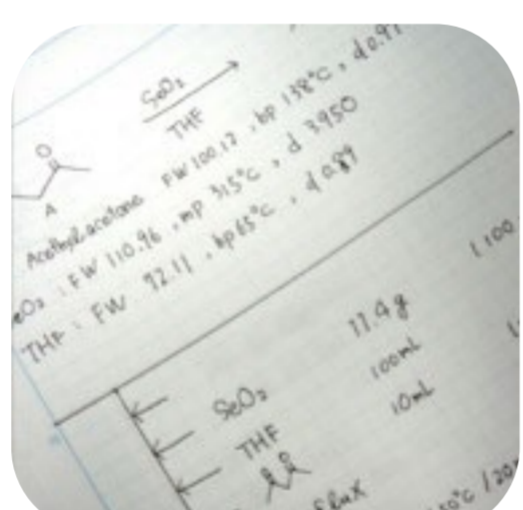 SeO2
THF
O
A
Acethyl acetone FW 100.12 , bp 138°C , d 0.97
eO2 : FW 110.96 , mp 315°C , d 3.950
THF : FW 72.11 , bp 65°C , d 0.89
SeO2 11.4 g 1.100
THF 100mL
10mL
flux